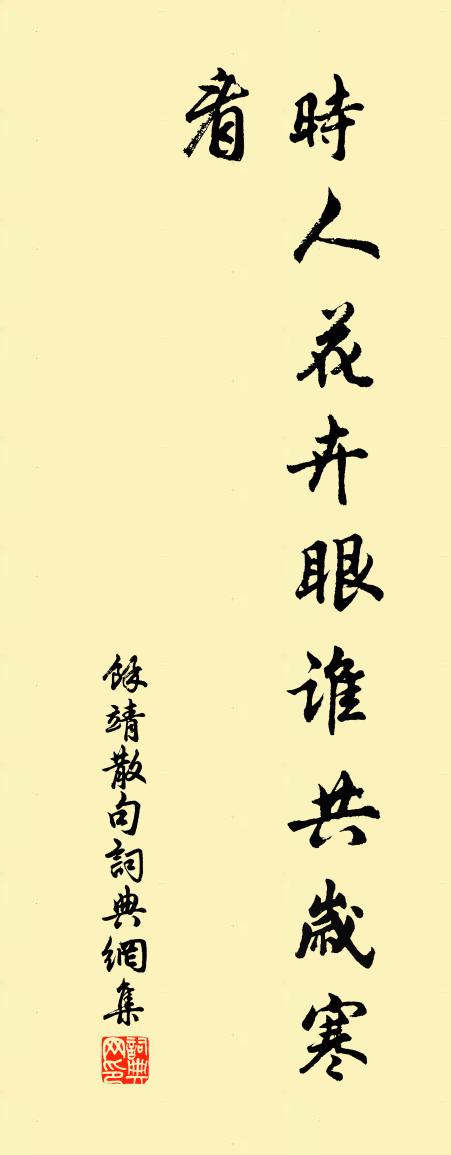 時人花卉眼誰共歲寒
看
餘靖散句詞典網集
詞典
网印